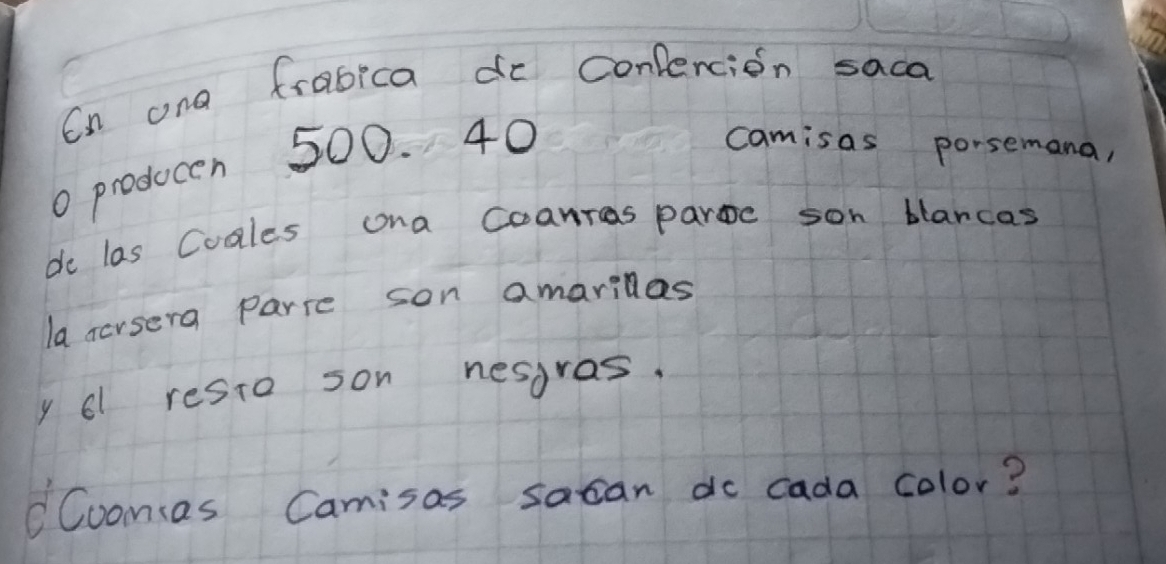 En una frabica de Confención saca
o producen 500. 40 camisas porsemana,
de las Cuales una Cuantas parte son blancas
la tersera parte son amarillas
y el resto son nesgras.
¿Cuontas Camisas sacan de cada color?